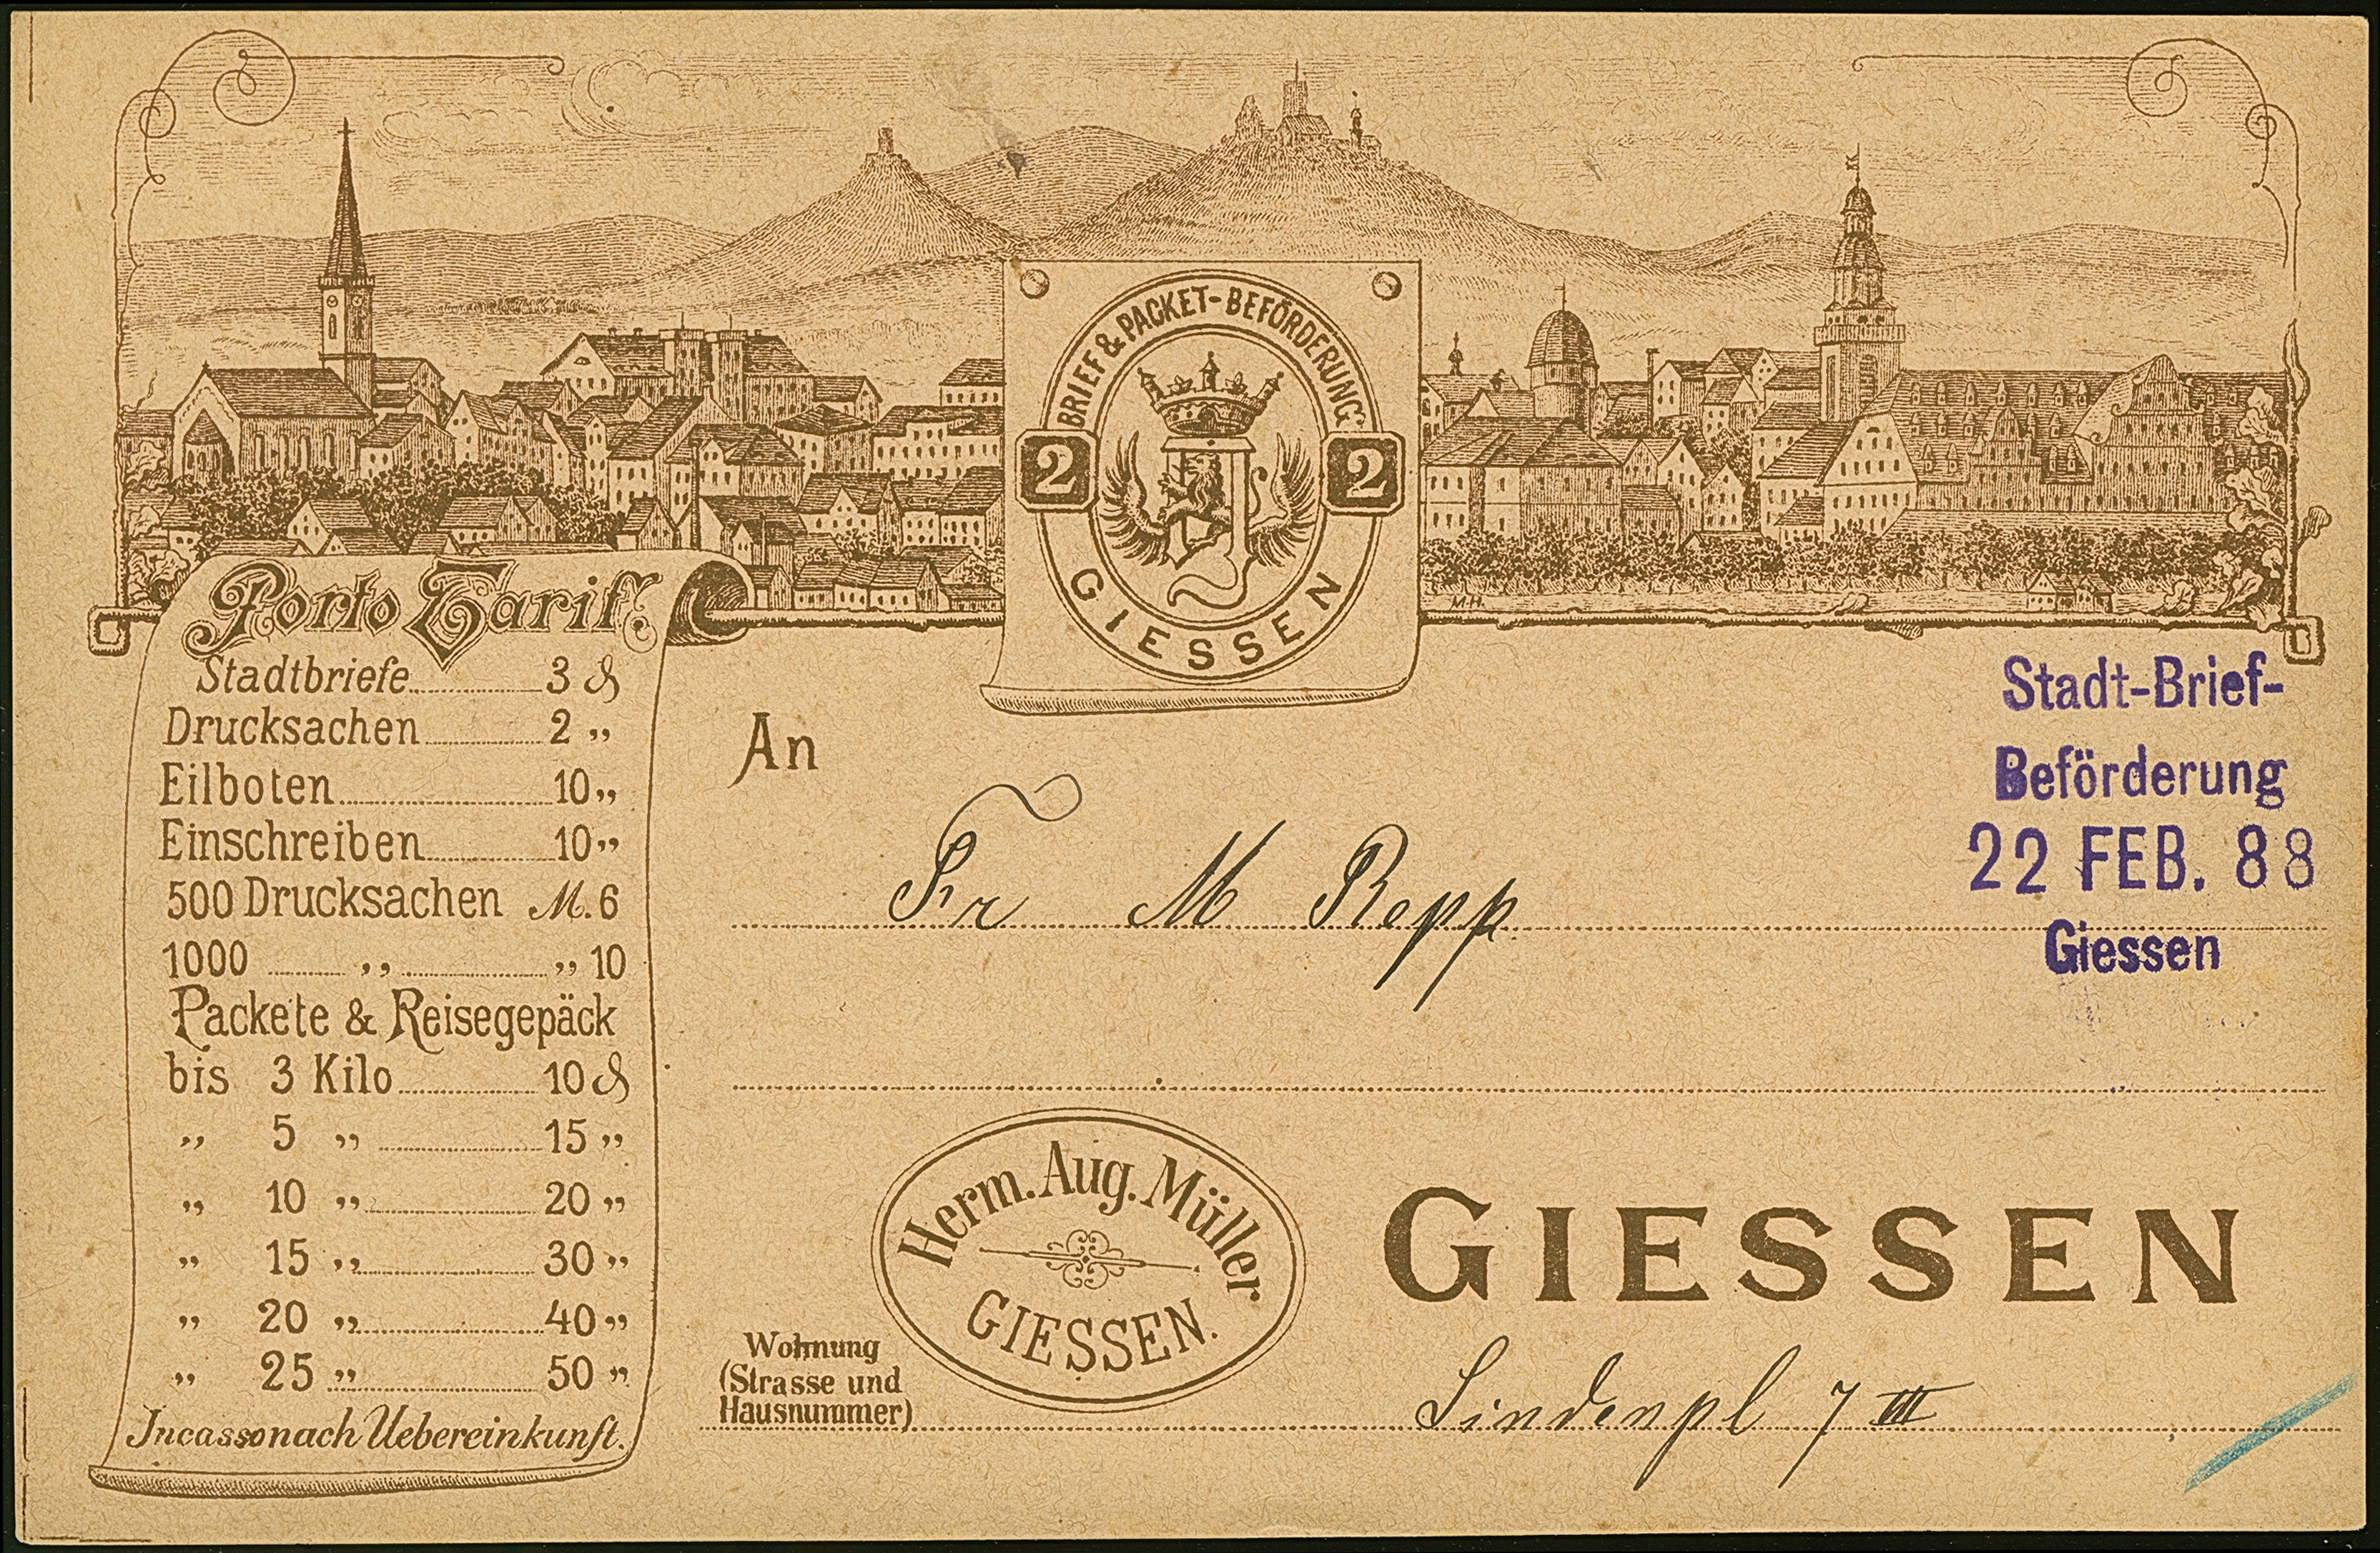 BRIEF & PACKET-BEFÖRDERUNG
2 2
GIESSEN
M.H.
Porto Tarif.
Stadtbriefe 3 ₰
Drucksachen 2 „
Eilboten 10 „
Einschreiben 10 „
500 Drucksachen M. 6
1000 „ „ 10
Packete & Reisegepäck
bis 3 Kilo 10 ₰
„ 5 „ 15 „
„ 10 „ 20 „
„ 15 „ 30 „
„ 20 „ 40 „
„ 25 „ 50 „
Incasso nach Uebereinkunft.
An
Stadt-Brief-
Beförderung
22 FEB. 88
Giessen
Fr M Repp
Herm. Aug. Müller
GIESSEN.
GIESSEN
Wohnung
(Strasse und
Hausnummer)
Lindenpl 7 III